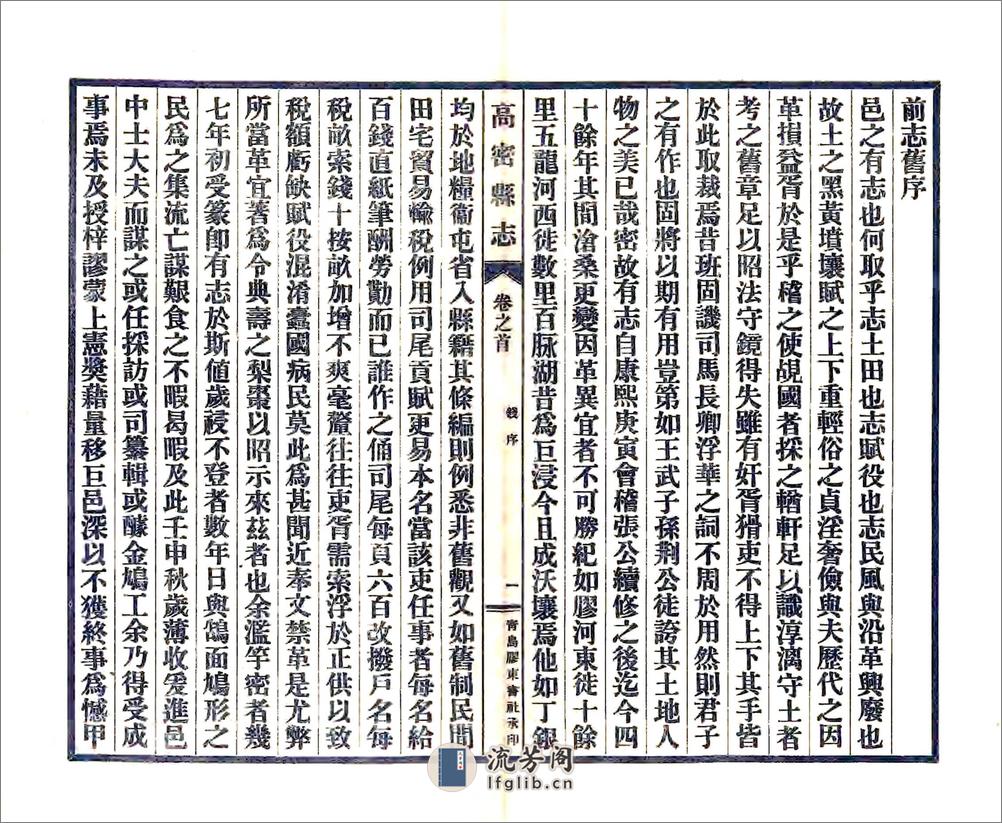 前志舊序
邑之有志也何取乎志土田也志賦役也志民風與沿革興廢也
故土之黑黃墳壤賦之上下重輕俗之貞淫奢儉與夫歷代之因
革損益胥於是乎稽之使覘國者採之輶軒足以識淳漓守土者
考之舊章足以昭法守鏡得失雖有奸胥猾吏不得上下其手皆
於此取裁焉昔班固譏司馬長卿浮華之詞不周於用然則君子
之有作也固將以期有用豈第如王武子孫荆公徒誇其土地人
物之美已哉密故有志自康熙庚寅會稽張公續修之後迄今四
十餘年其間滄桑更變因革異宜者不可勝紀如膠河東徙十餘
里五龍河西徙數里百脉湖昔為巨浸今且成沃壤焉他如丁銀
高密縣志 卷之首 錢序 一 青島膠東書社承印
均於地糧衞屯省入縣籍其條編則例悉非舊觀又如舊制民間
田宅貿易輸稅例用司尾頁賦更易本名當該吏任事者每名給
百錢直紙筆酬勞勩而已誰作之俑司尾每頁六百改撥戶名每
稅畝索錢十按畝加增不爽毫釐往往吏胥需索浮於正供以致
稅額虧缺賦役混淆蠹國病民莫此為甚聞近奉文禁革是尤弊
所當革宜著為令典壽之梨棗以昭示來茲者也余濫竽密者幾
七年初受篆卽有志於斯値歲祲不登者數年日與鵠面鳩形之
民為之集流亡謀艱食之不暇曷暇及此壬申秋歲薄收爰進邑
中士大夫而謀之或任採訪或司纂輯或醵金鳩工余乃得受成
事焉未及授梓謬蒙上憲奬藉量移巨邑深以不獲終事為憾甲
流芳阁
lfglib.cn